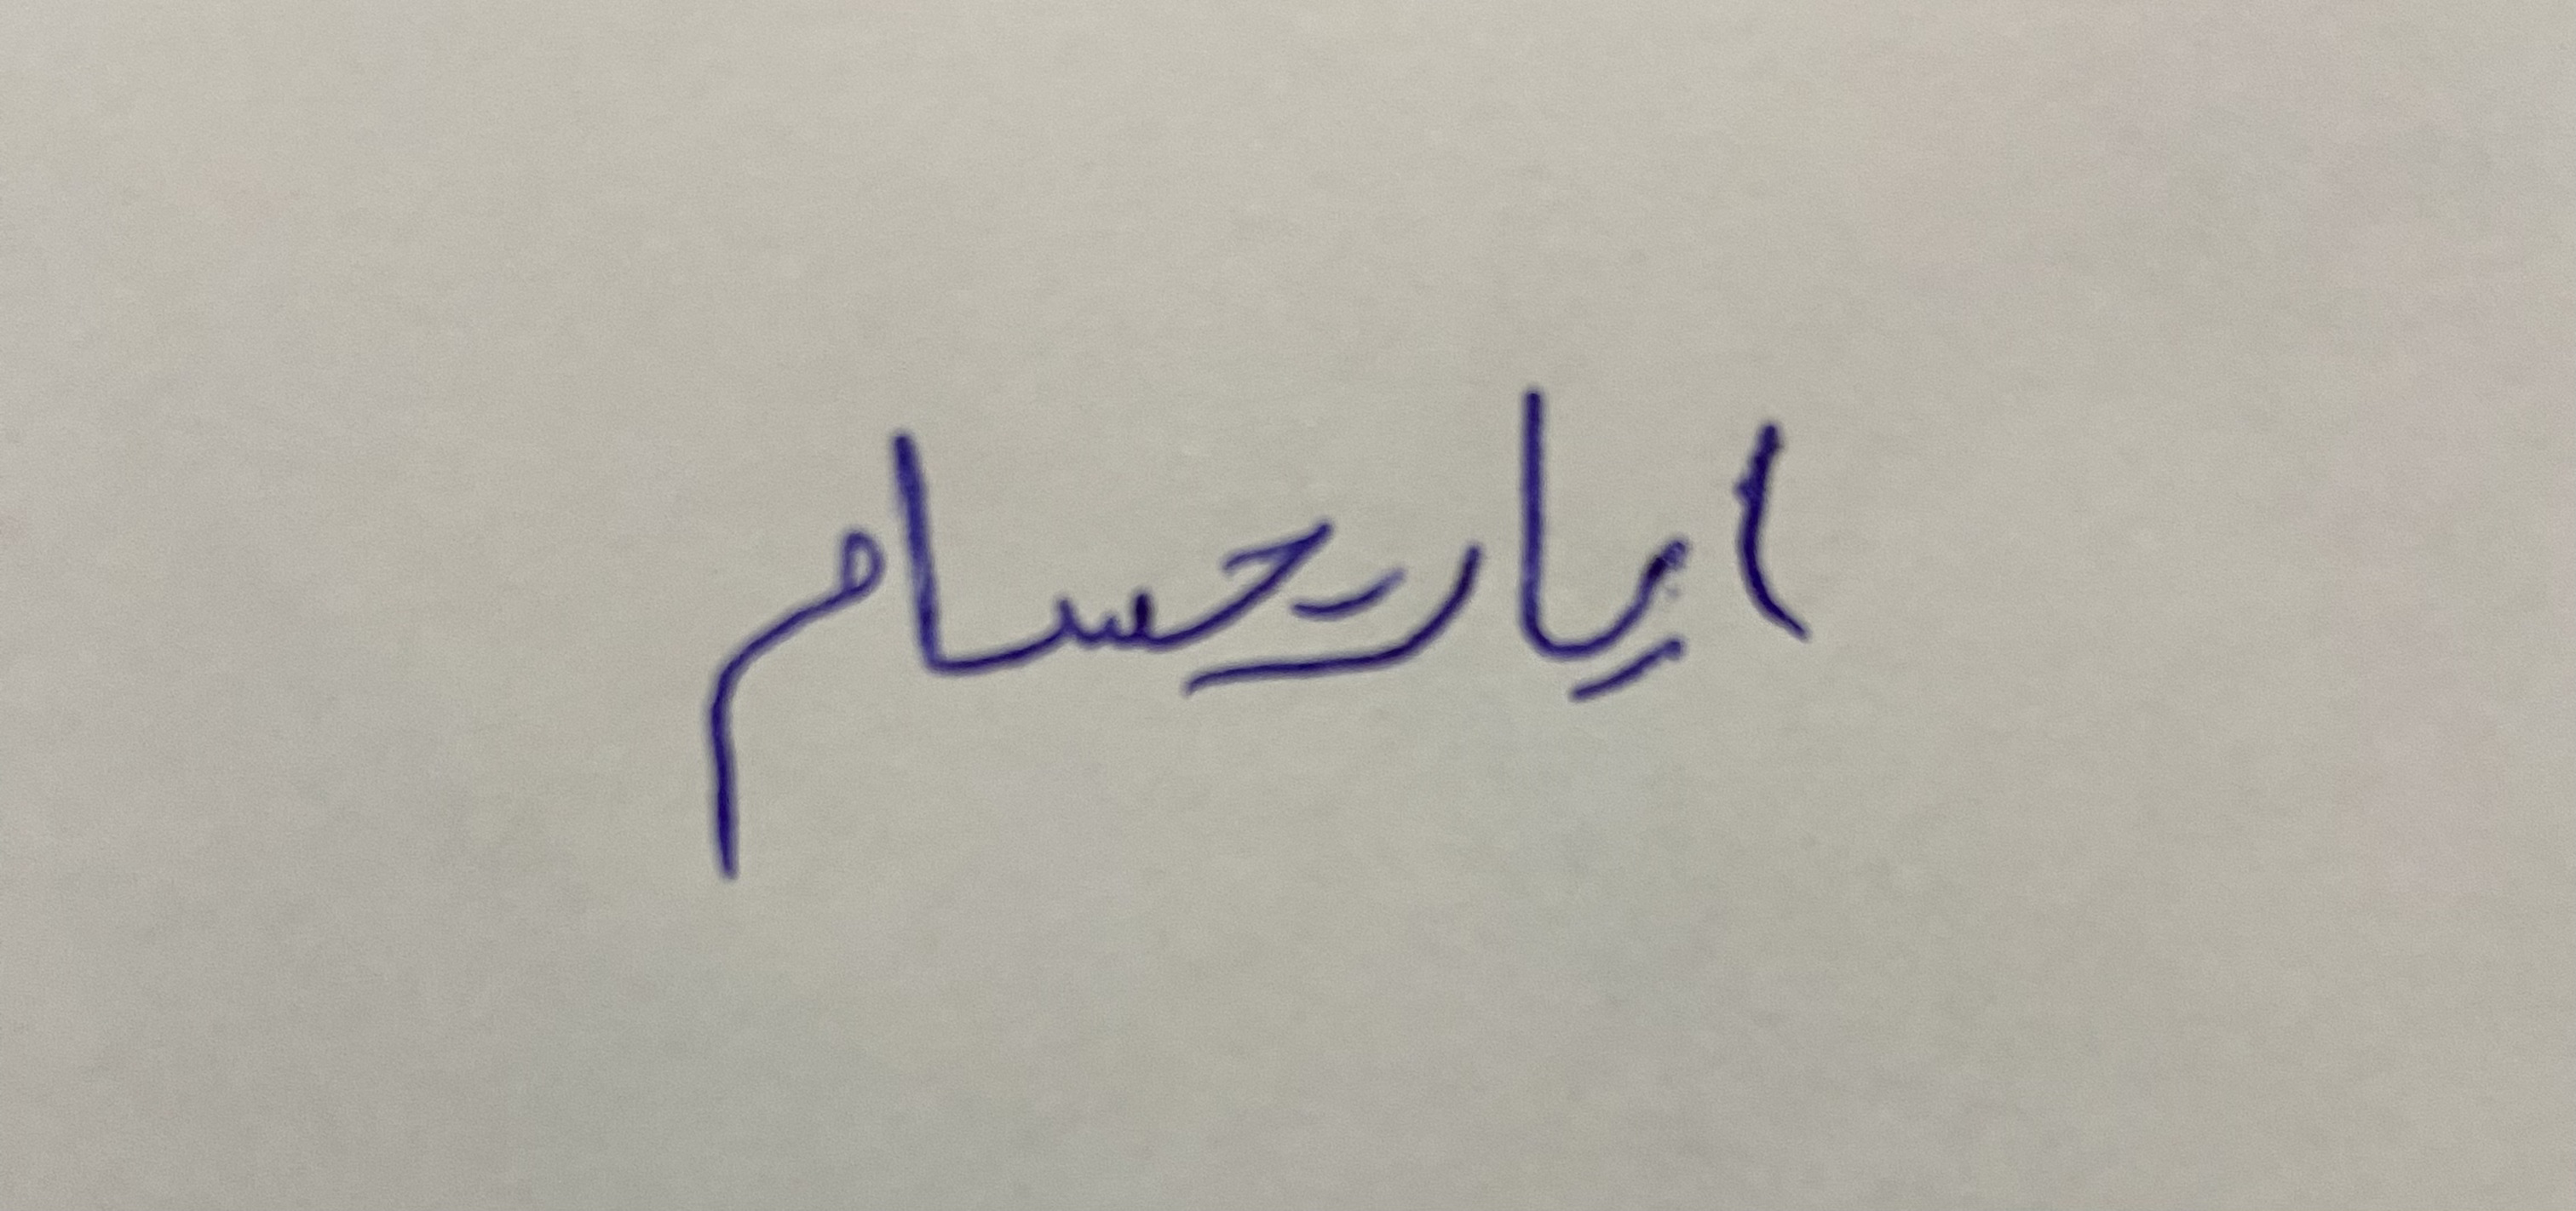 ايار حسام